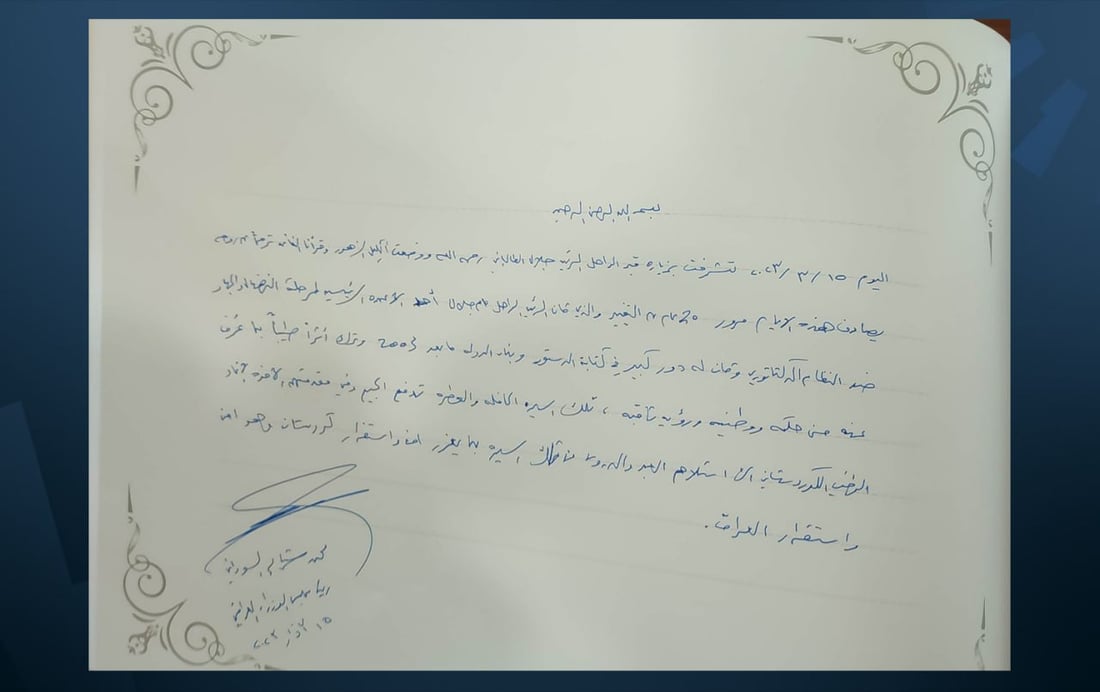 بسم الله الرحمن الرحيم
اليوم ١٥/٣/٢٠٢٣ تشرفت بزيارة قبر الراحل الرئيس جلال الطالباني رحمه الله ووضعت أكليل الزهور وقرأنا الفاتحة ترحماً على روحه
يصادف هذه الايام مرور 20 عام على التغيير والذي كان الرئيس الراحل مام جلال أحد الاعمدة الرئيسية لمرحلة النضال والجهاد
ضد النظام الدكتاتوري وكان له دور كبير في كتابة الدستور وبناء الدولة ما بعد 2003 وترك أثراً طيباً بما عُرف
عنه من حكمة ووطنية ورؤية ثاقبة ، تلك السيرة الكاملة والعطرة تدفع الجميع وفي مقدمتهم الاخوة
الوطني الكوردستاني الى استلهام العبر والدروس من تلك السيرة بما يعزز امن واستقرار كردستان وهو امن
واستقرار العراق.
محمد شياع السوداني
رئيس مجلس الوزراء العراقي
١٥ آذار ٢٠٢٣